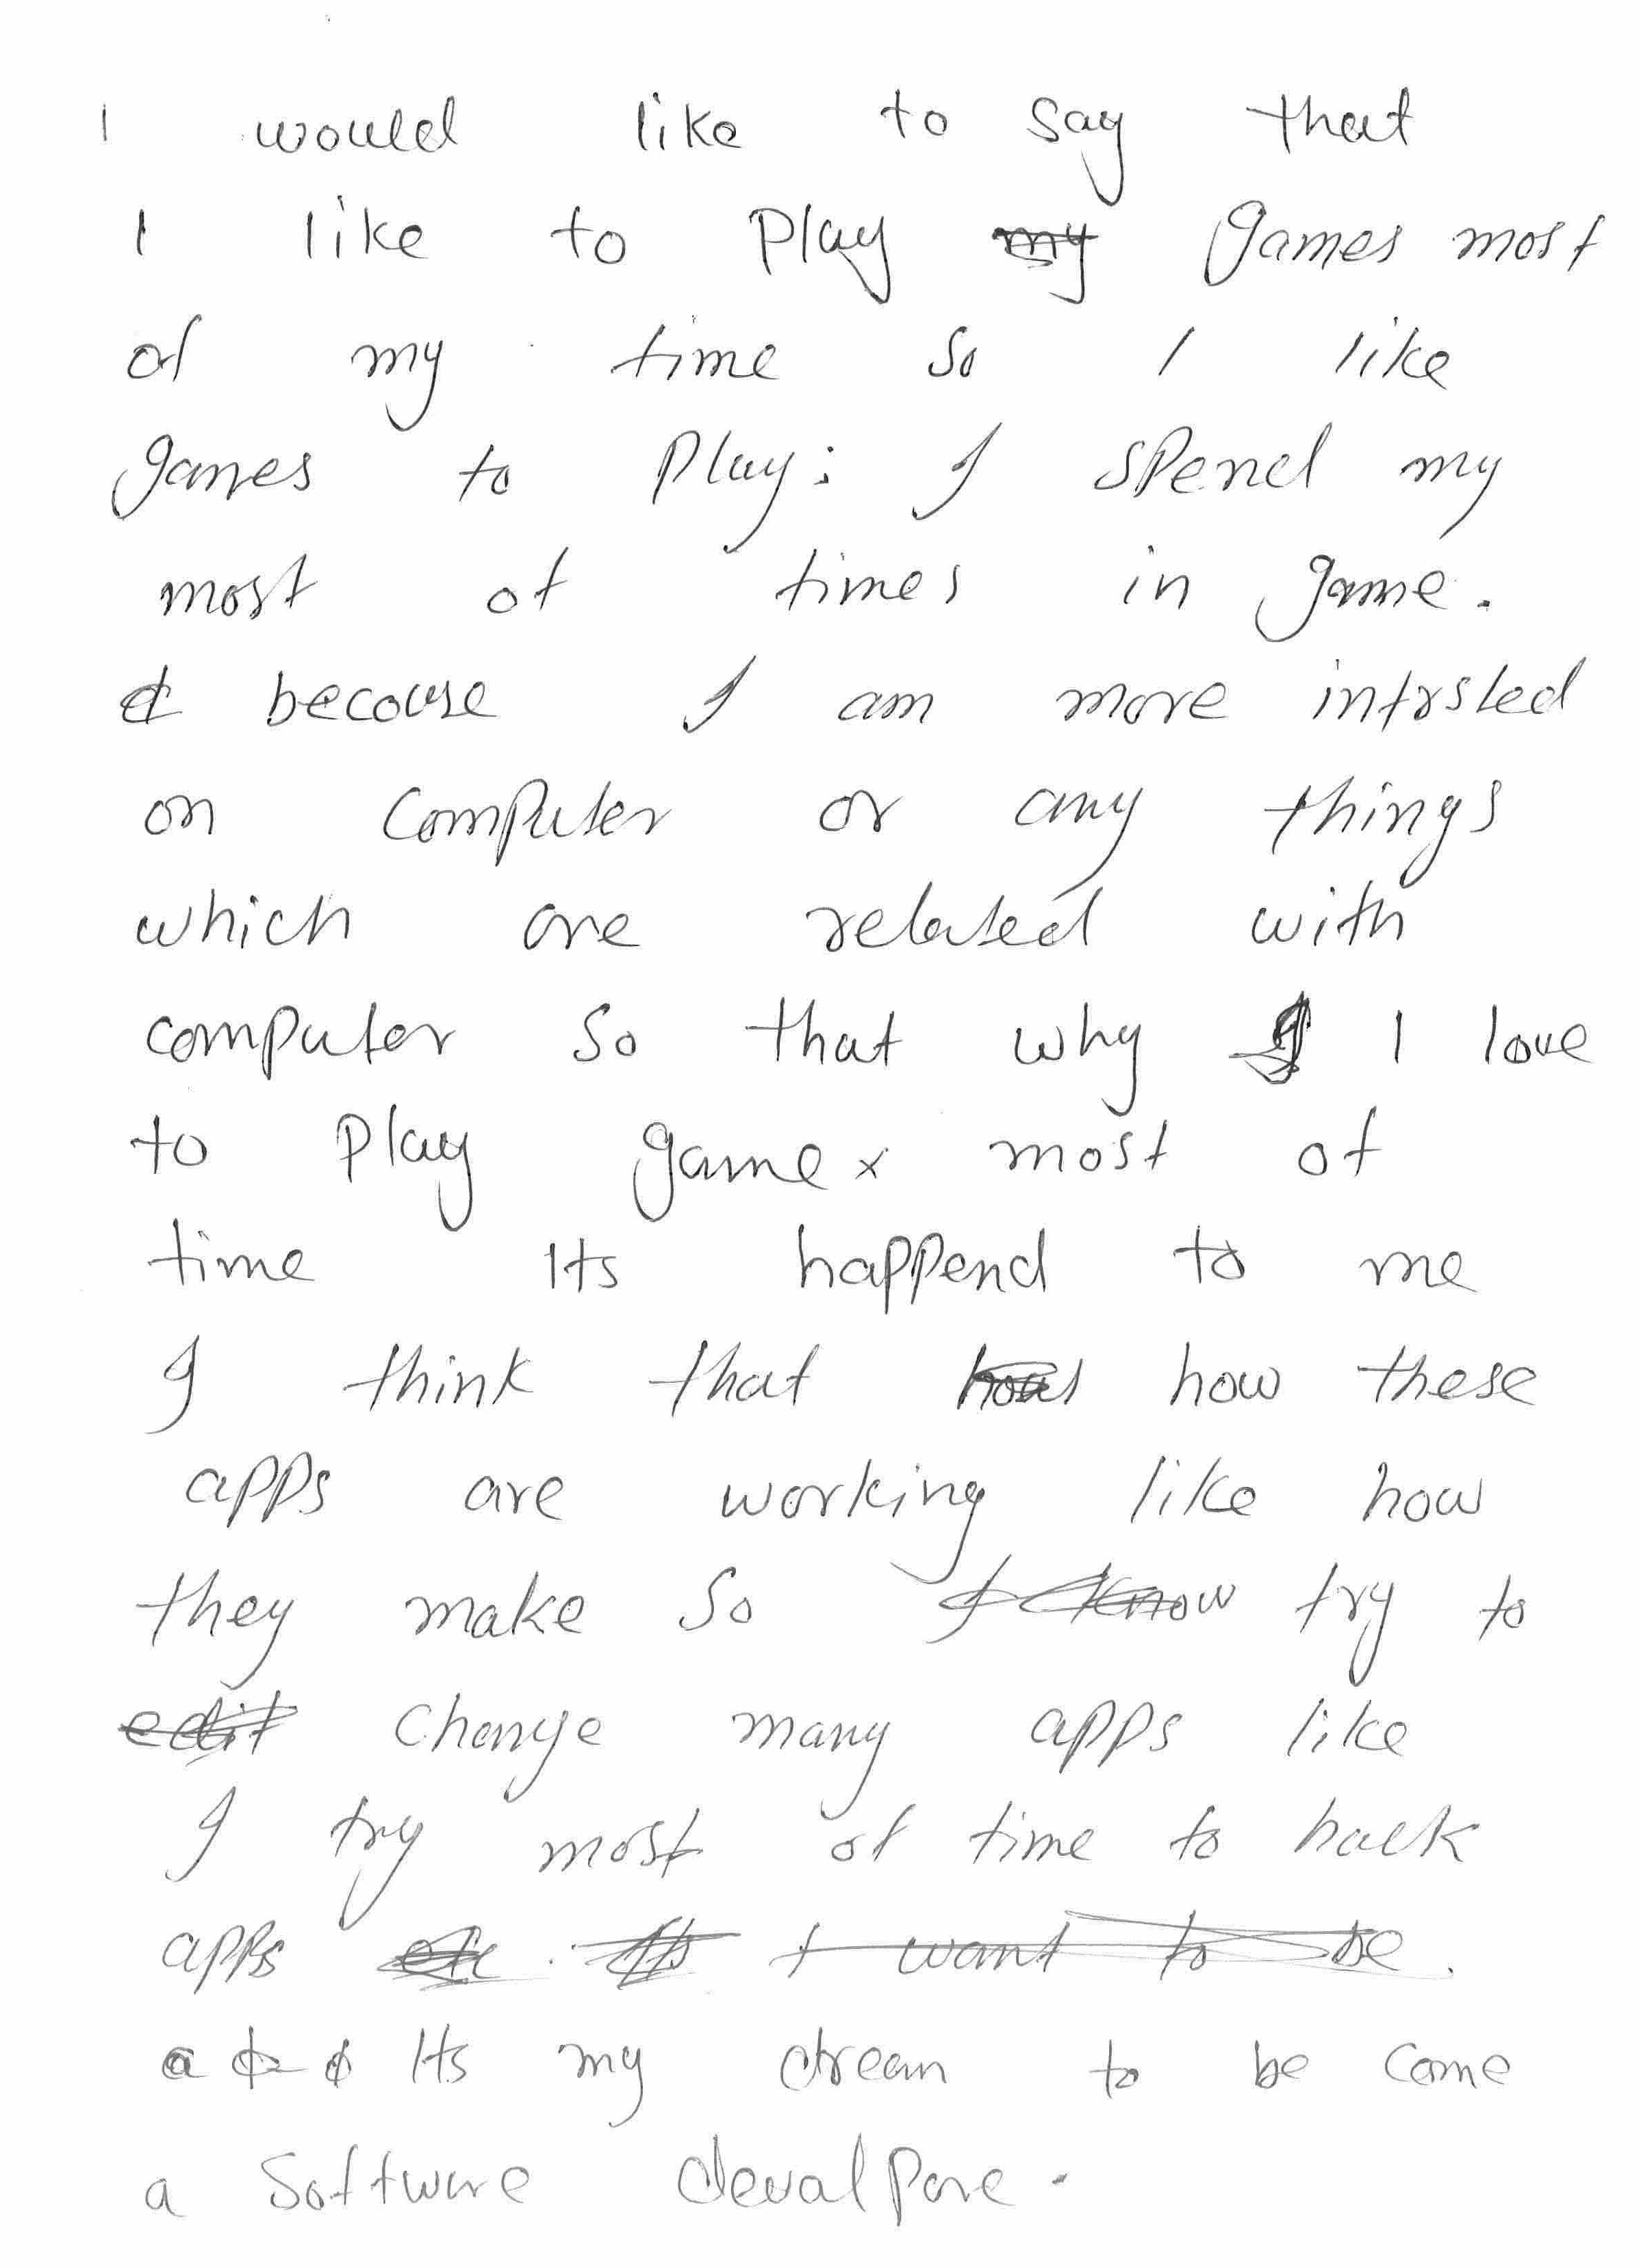 I would like to say that
I like to play my games most
of my time so I like
games to play: I spend my
most of times in game.
because I am more intrsted
on computer or any things
which are related with
computer so that why I love
to play game x most of
time Its happend to me
I think that how these
apps are working like how
they make so I know try to
edit change many apps like
I try most of time to hack
apps I want to be.
a Its my dream to be come
a software devalpore.